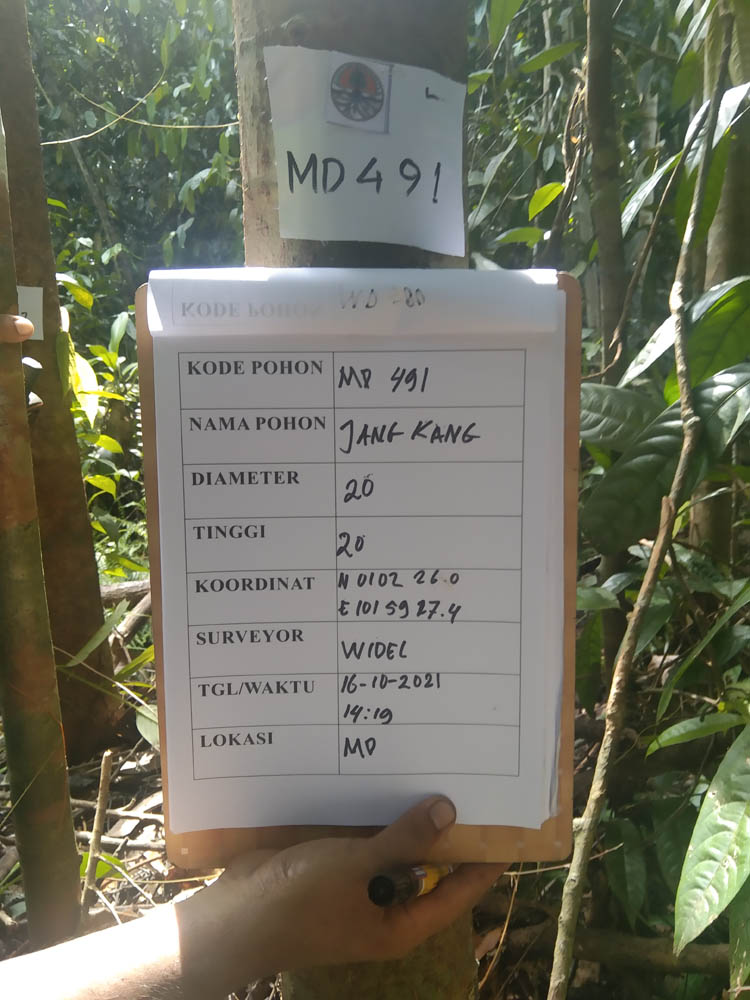 MD 491
KODE POHON
KODE POHON MD 491
NAMA POHON JANGKANG
DIAMETER 20
TINGGI 20
KOORDINAT N 0102 26.0
E 101 59 27.4
SURVEYOR WIDEL
TGL/WAKTU 16-10-2021
14:19
LOKASI MD